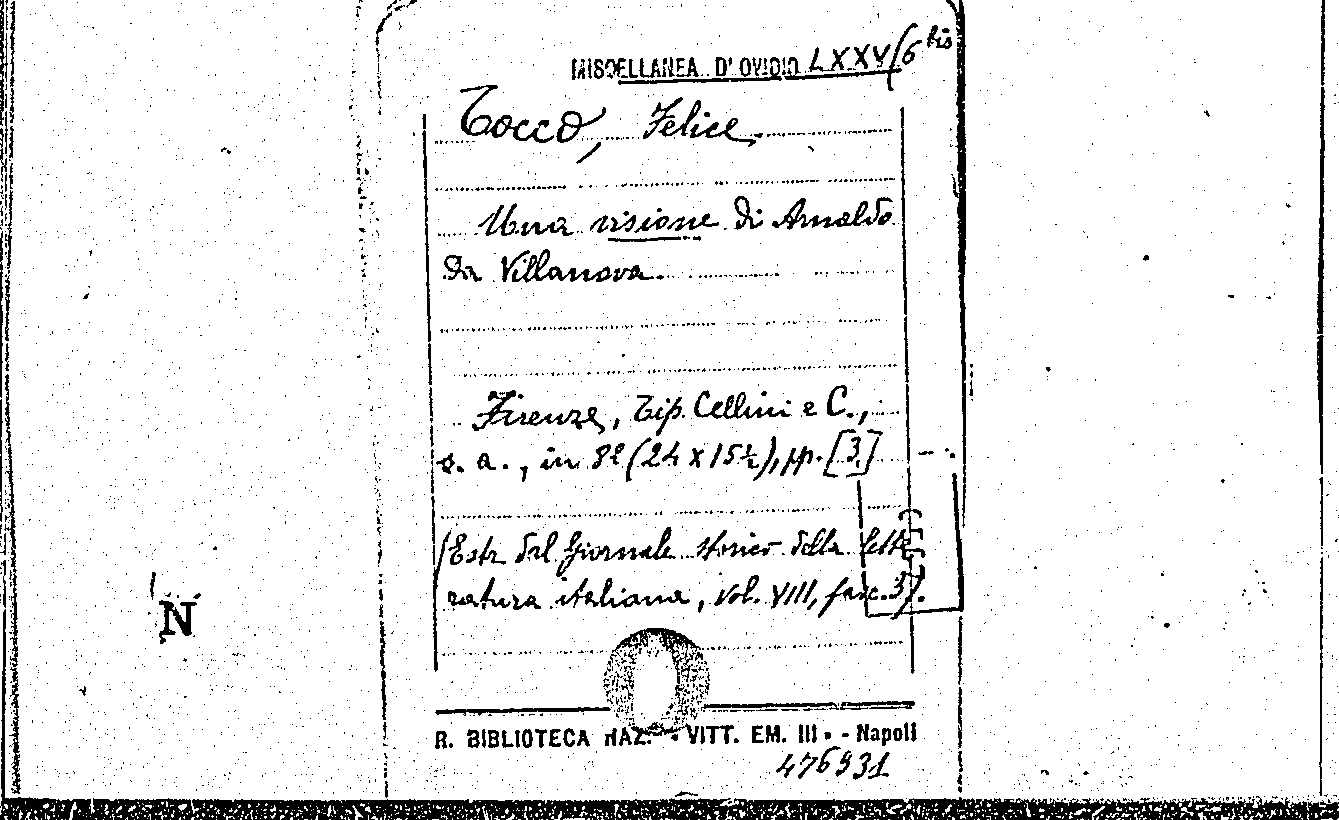 MISCELLANEA D'OVIDIO LXXV/6 bis
Tocco, Felice
Una visione di Arnaldo
da Villanova.
Firenze, Tip. Cellini e C.,
s. a., in 8º (24 x 15½), pp. [3]
(Estr. dal Giornale storico della lette
ratura italiana, vol. VIII, fasc. 3).
N
R. BIBLIOTECA NAZ. VITT. EM. III - Napoli
476931